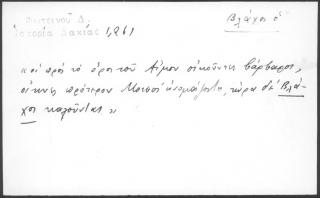 Φωτεινού Δ.
Ιστορία Δακίας 1,261
Βλάχοι οἱ
«οἱ πρὸς τὸ ὄρος τοῦ Αἵμου οἰκοῦντες βάρβαροι,
οἵτινες πρότερον Μοισοὶ ὠνομάζοντο, τώρα δὲ Βλά-
χοι καλοῦνται»